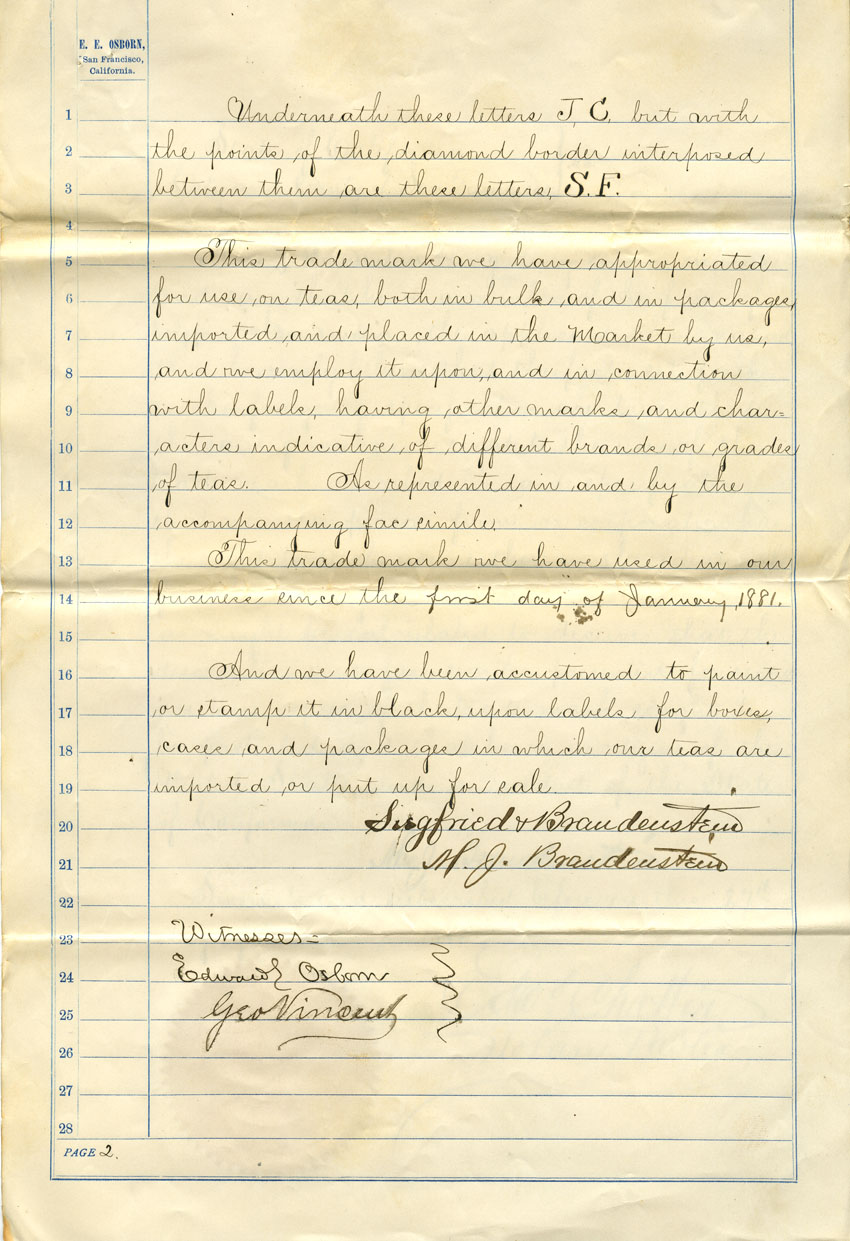 E. E. OSBORN,
San Francisco,
California.
1 Underneath these letters J. C. but with
2 the points of the diamond border interposed
3 between them are these letters, S. F.
4
5 This trade mark we have appropriated
6 for use, on teas, both in bulk and in packages,
7 imported, and placed in the Market by us,
8 and we employ it upon, and in connection
9 with labels, having other marks and char=
10 acters indicative of different brands or grades
11 of teas. As represented in and by the
12 accompanying fac simile.
13 This trade mark we have used in our
14 business since the first day of January, 1881.
15
16 And we have been accustomed to paint
17 or stamp it in black, upon labels for boxes,
18 cases and packages in which our teas are
19 imported or put up for sale.
20 Siegfried & Brandenstein
21 M. J. Brandenstein
22
23 Witnesses=
24 Edward E Osborn
25 Geo Vincent
26
27
28
PAGE 2.